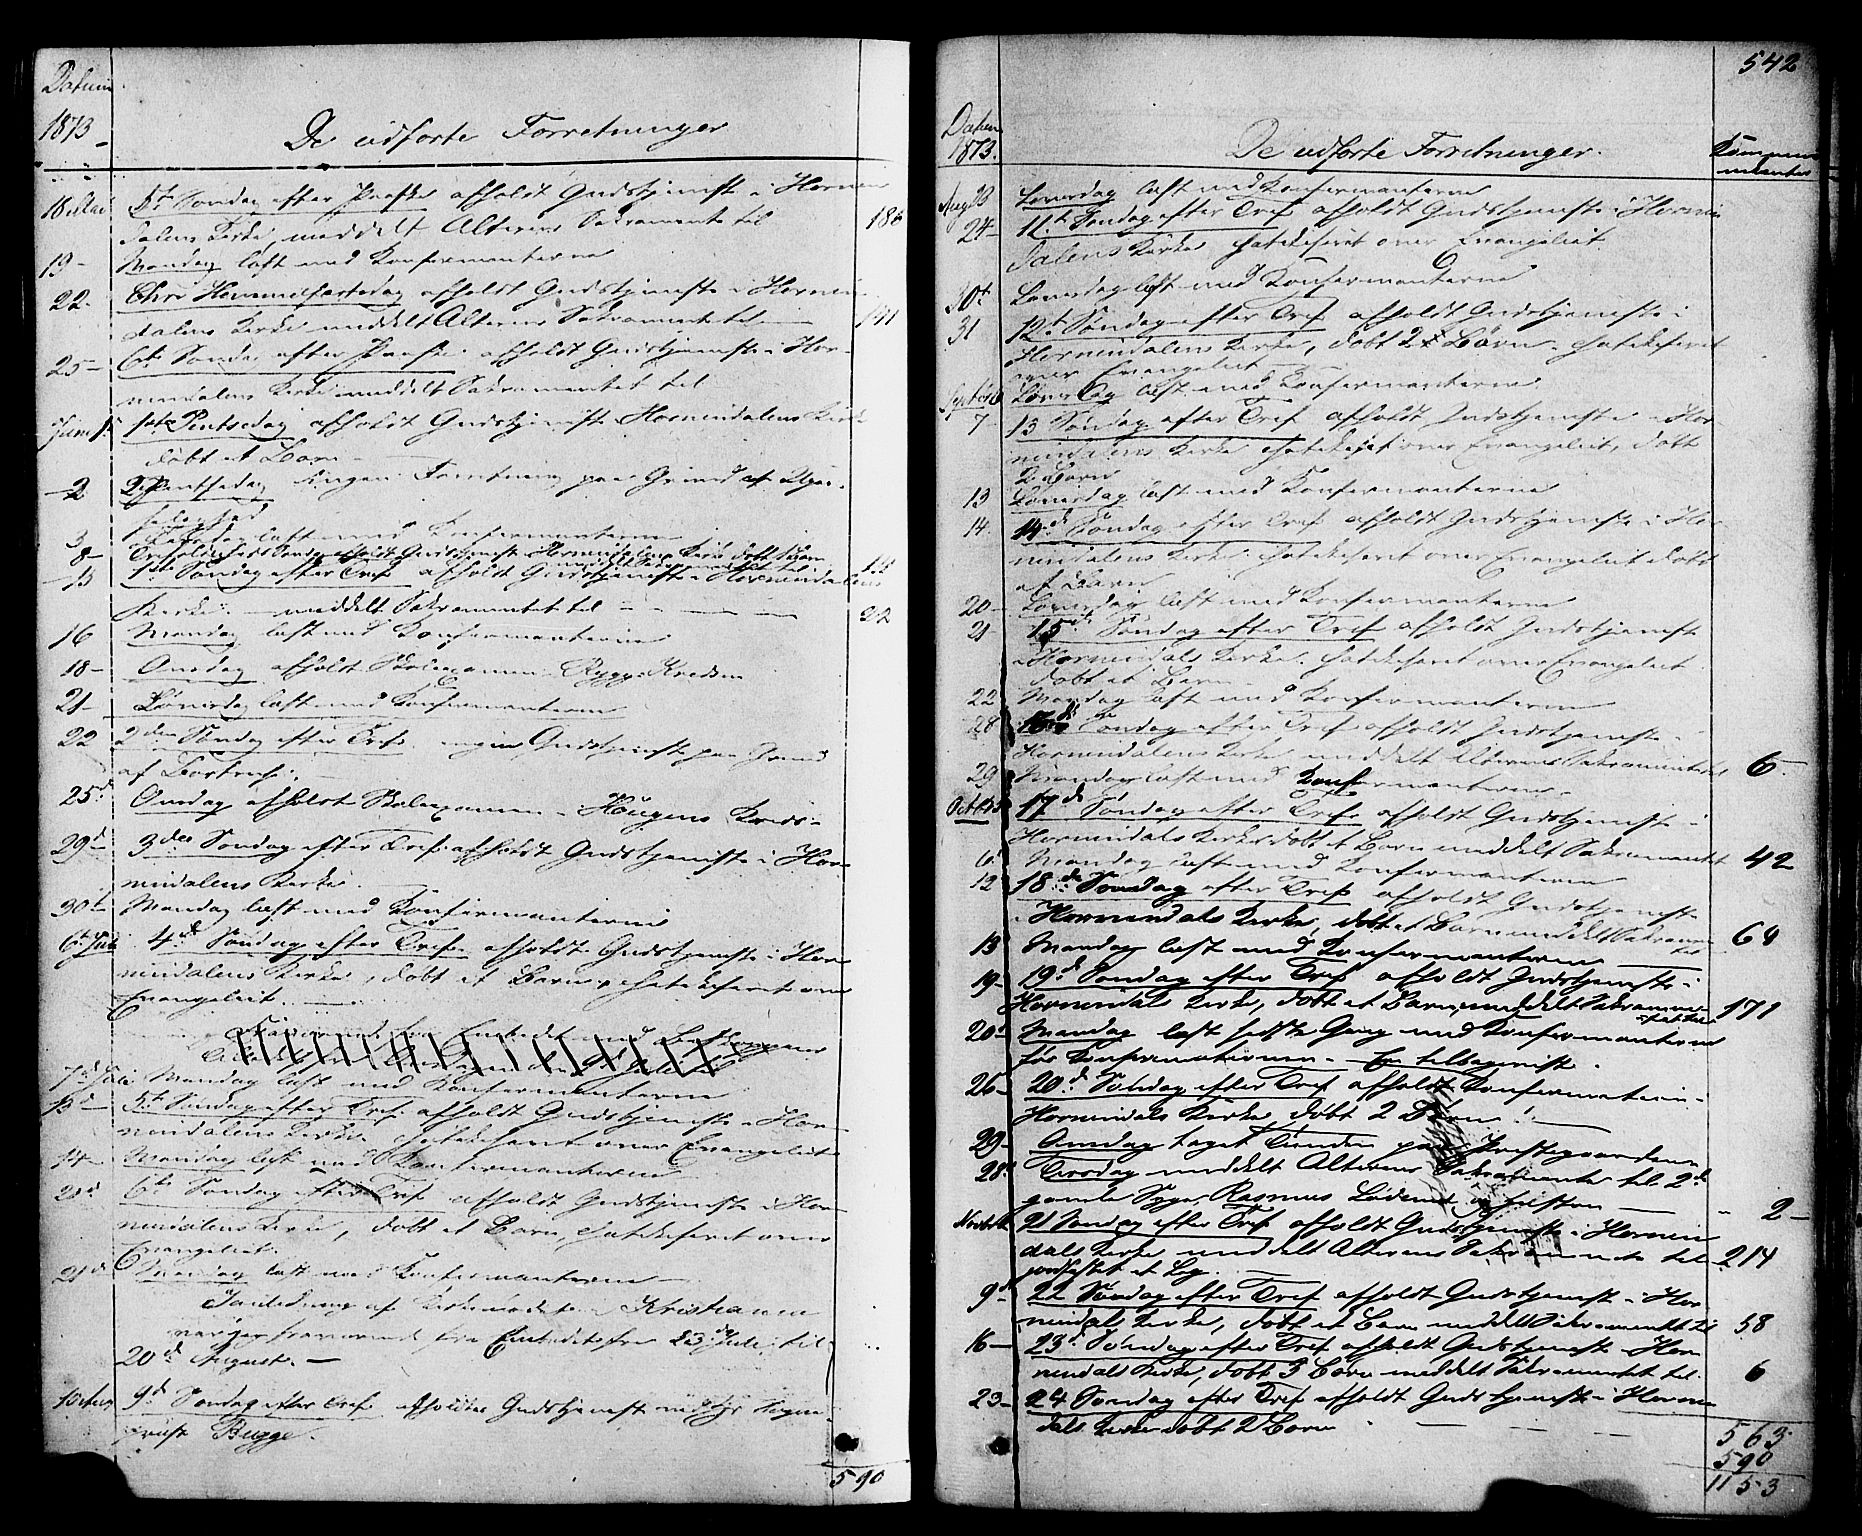 Datum
1873
De udførte Forretninger
18 Mai 5te Søndag efter Paaske afholdt Gudstjeneste i Hornin
dalens Kirke, meddelt Alterens Sakramente til 186
19 - Mandag læst med Konfermanterne
22 - Chri Himmelfartsdag afholdt Gudstjeneste i Hornin
dalens Kirke meddelt Alterens Sakramente til 141
25 - 6te Søndag efter Paaske afholdt Gudstjeneste i Hor-
nindalens Kirke meddelt Sakramentet til
Juni 1ste Pintsedag afholdt Gudstjeneste Hornindalens Kirke
døbt et Barn
2 2den Pintsedag ingen Forretning paa Grund af Upas-
selighed
3 læst med Konfermanterne
8 - Trefoldigheds Søndag afholdt Gudstjeneste Hornindalens Kirke døbt Barn
meddelt Sakramentet til
15 1ste Søndag efter Tref afholdt Gudstjeneste i Hornindalens
Kirke - meddelt Sakramentet til 32
16 Mandag læst med Konfermanterne
18 - Onsdag afholdt Skolexamen Rygg-Kredsen
21 - Løverdag læst med Konfermanterne
22 2den Søndag efter Tref ingen Gudstjeneste paa Grund
af
25d Onsdag afholdt Skolexamen - Haugens Kreds -
29d 3die Søndag efter Tref afholdt Gudstjeneste i Hor
nindalens Kirke.
30te Mandag læst med Konfermanterne
6te Juli 4de Søndag efter Tref afholdt Gudstjeneste i Hor
nindalens Kirke, døbt et Barn, katekiseret over
Evangeliet.
7d Juli Mandag læst med Konfermanterne
13d - 5te Søndag efter Tref afholdt Gudstjeneste i Hor-
nindalens Kirke katekiseret over Evangeliet
14 - Mandag læst med Konfermanterne
20d 6te Søndag efter Tref afholdt Gudstjeneste i Hor-
nindalens Kirke, døbt et Barn, katekiseret over
Evangeliet.
21de Mandag læst med Konfermanterne
I anledning af Kirkemødet i Kristiania
var jeg fraværende fra Embedet fra 23de Juli til
20d August. -
9d Søndag efter Tref afholdtes Gudstjeneste ved Hr Sogne
præst Bugge.
590
542
Datum
1873.
De udførte Forretninger.
Kommuni
kanter
Aug 23 Løverdag læst med Konfermanterne
24 - 11te Søndag efter Tref afholdt Gudstjeneste i Hornin
dalens Kirke katekiseret over Evangeliet
30te Løverdag læst med Konfermanterne
31 12te Søndag efter Tref afholdt Gudstjeneste i
Hornindalens Kirke, døbt 2 Børn - katekiseret
over Evangeliet
Septbr 6 Løverdag læst med Konfermanterne
7 - 13 Søndag efter Tref afholdt Gudstjeneste i Hor
nindalens Kirke katekiseret over Evangeliet, døbt
2 Børn
13 Løverdag læst med Konfermanterne
14. 14de Søndag efter Tref afholdt Gudstjeneste i Hor
nindalens Kirke, katekiseret over Evangeliet døbt
et Barn
20 - Løverdag læst med Konfermanterne
21 15de Søndag efter Tref afholdt Gudstjeneste
i Hornindals Kirke. katekiseret over Evangeliet.
døbt et Barn
22 Mandag læst med Konfermanterne
28 16de Søndag efter Tref afholdt Gudstjeneste i
Hornindalens Kirke meddelt Alterens Sakramente til 6
29 Mandag læst med Konfermanterne.
Octbr 5 17de Søndag efter Tref afholdt Gudstjeneste i
Hornindals Kirke døbt et Barn meddelt Sakramentet 42
6te Mandag læst med Konfermanterne
12 18de Søndag efter Tref afholdt Gudstjeneste
i Hornindals Kirke, døbt et Barn meddelt Sakramen
tet 64
13 Mandag læst med Konfermanterne
19 - 19d Søndag efter Tref afholdt Gudstjeneste i
Hornindals Kirke, døbt et Barn, meddelt Sakramen
tet til 171
20de Mandag læst sidste Gang med Konfermanterne
før Konfermationen -
26 - 20d Søndag efter Tref afholdt Konfermation i
Hornindals Kirke, døbt 2 Børn!
29 - Onsdag taget Tienden paa Prestegaarden
28d Tirsdag meddelt Alterens Sakramente til 2d
gamle Syge, Rasmus Lødemel og 2 -
Novbr 21 Søndag efter Tref afholdt Gudstjeneste i Hornin
dals Kirke meddelt Alterens Sakramente til 214
jordfæstet et Lig
9d - 22 Søndag efter Tref afholdt Gudstjeneste i Hor
nindals Kirke, døbt et Barn meddelt Sakramentet til 58
16 - 23d Søndag efter Tref afholdt Gudstjeneste - Hor
nindals Kirke, døbt 3 Børn meddelt Sakramentet til 6
23 - 24 Søndag efter Tref afholdt Gudstjeneste i Hornin
dals Kirke døbt 2 Børn
563
590
1153